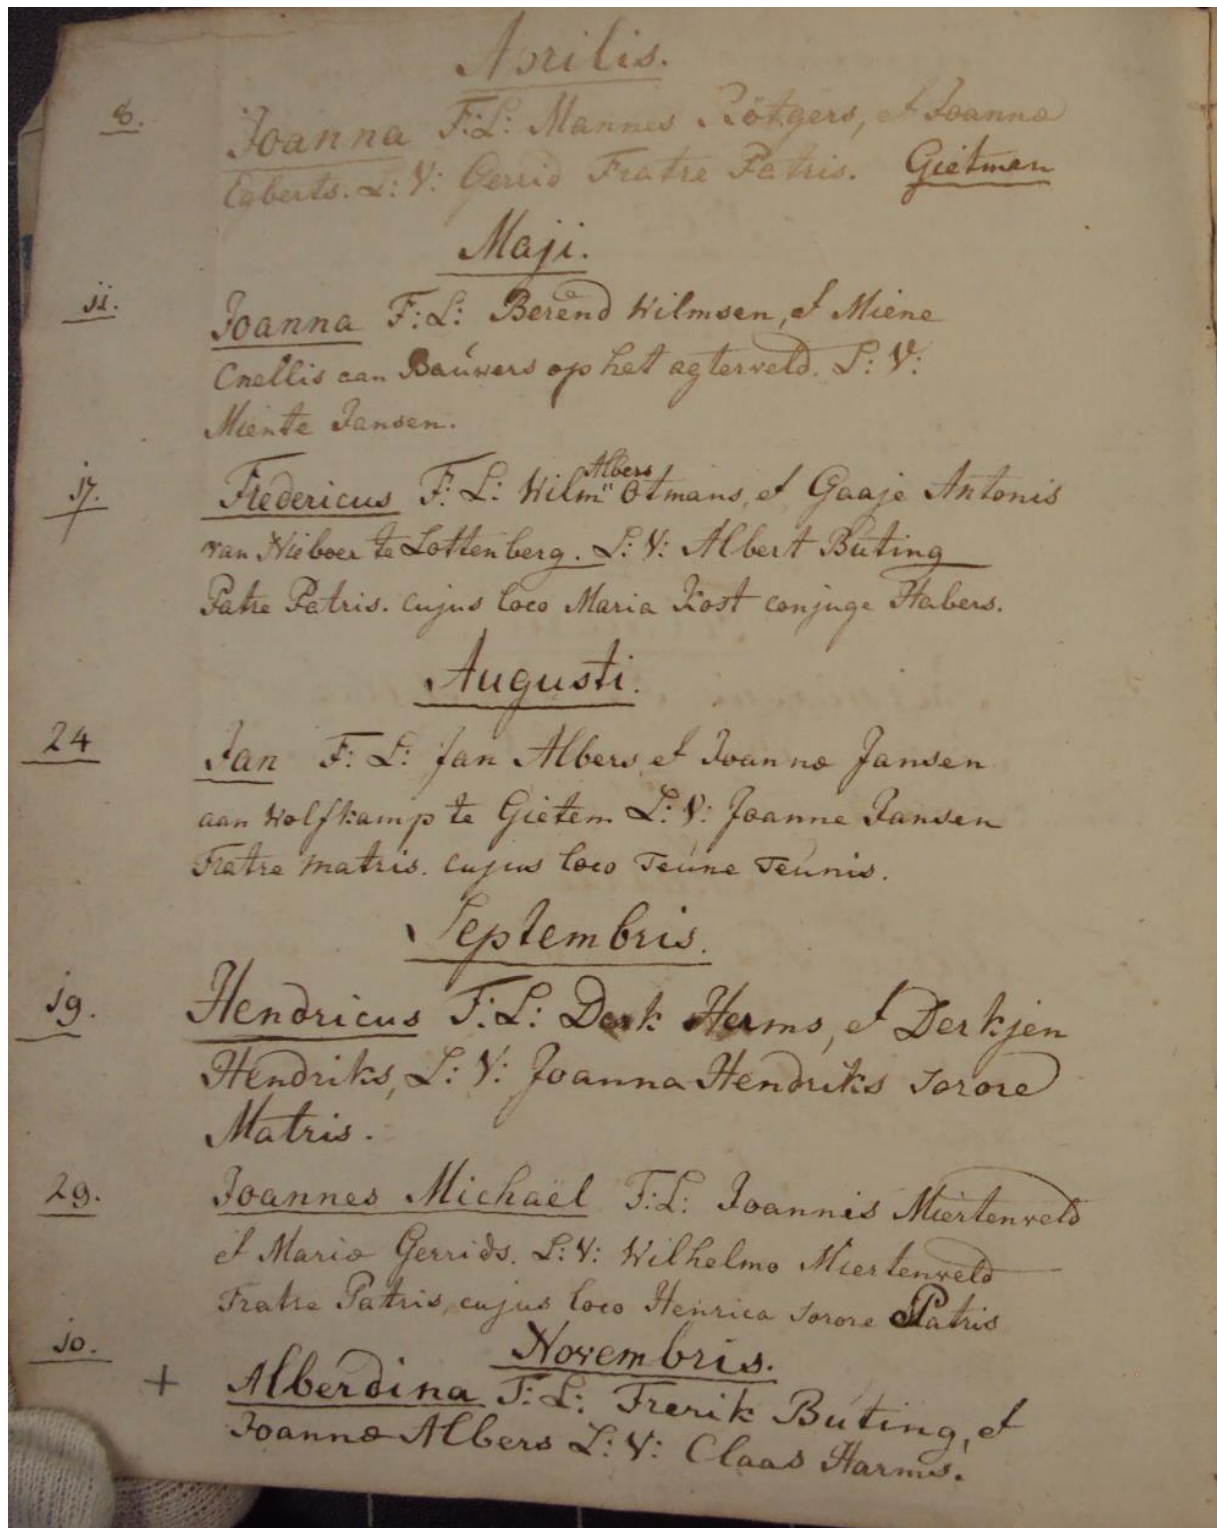 Aprilis.
8. Joanna F: L: Mannes Rötgers, et Joanna
Egberts. L: V: Gerrid Fratre Patris. Gietman
Maji.
11. Joanna F: L: Berend Wilmsen, et Miene
Cnellis aan Bauwers op het agterveld. L: V:
Miente Jansen.
Albers
17. Fredericus F: L: Wilm" Otmans, et Gaaje Antonis
van Nieboer te Lottenberg. L: V: Albert Buting
Patre Patris. cujus loco Maria Kost conjuge Habers.
Augusti.
24 Jan F: L: Jan Albers et Joannæ Jansen
aan Wolfkamp te Gietem L: V: Joanne Jansen
Fratre matris. cujus loco Teune Teunis.
Septembris.
19. Hendricus F: L: Derk Herms, et Derkjen
Hendriks, L: V: Joanna Hendriks sorore
Matris.
29. Joannes Michaël F: L: Joannis Miertenveld
et Mariæ Gerrids. L: V: Wilhelmo Miertenveld
Fratre Patris, cujus loco Henrica sorore Patris
Novembris.
10. + Alberdina F: L: Frerik Buting, et
Joannæ Albers L: V: Claas Harms.